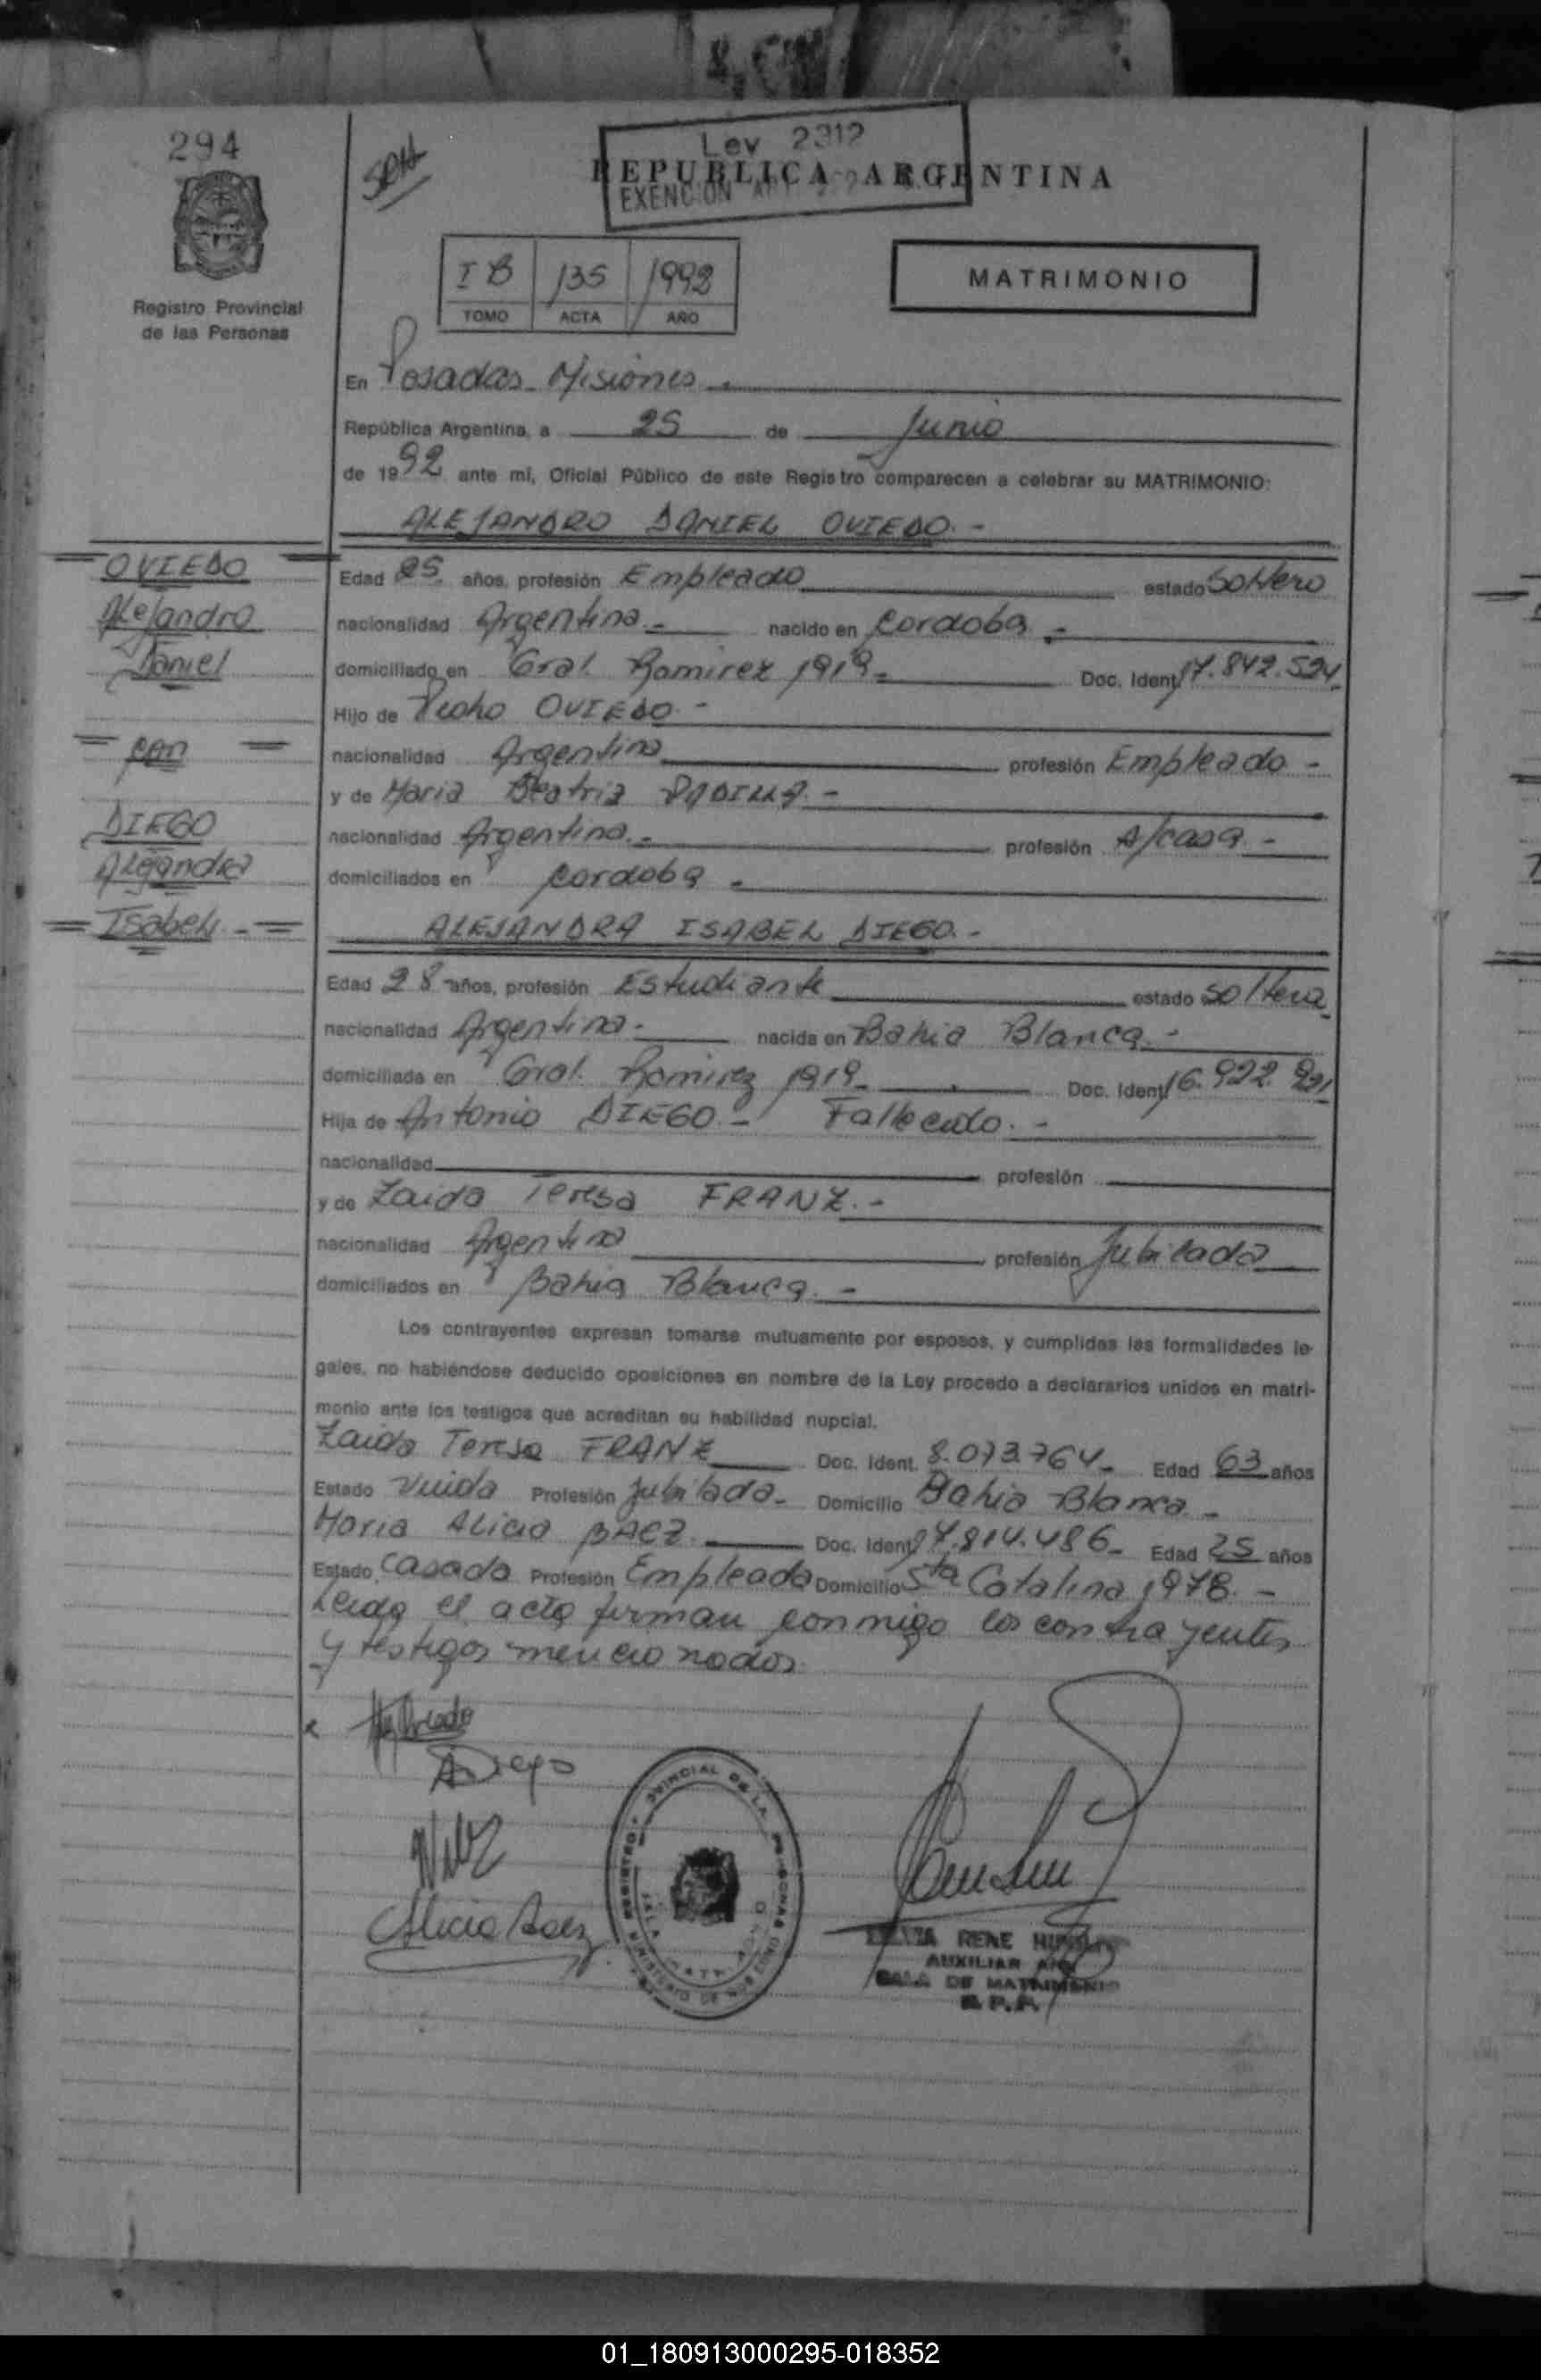 294
Ley 2312
REPUBLICA ARGENTINA
EXENCION
I B 135 1992
TOMO ACTA AÑO
MATRIMONIO
Registro Provincial
de las Personas
En Posadas Misiones.
República Argentina, a 25 de Junio
de 1992 ante mí, Oficial Público de este Registro comparecen a celebrar su MATRIMONIO:
ALEJANDRO DANIEL OVIEDO.-
OVIEDO
Alejandro
Daniel
con
DIEGO
Alejandra
Isabel.-
Edad 25 años, profesión Empleado estado Soltero
nacionalidad Argentina.- nacido en Cordoba.-
domiciliado en Gral. Ramirez 1919- Doc. Ident. 17.842.524
Hijo de Pedro OVIEDO.-
nacionalidad Argentina profesión Empleado-
y de Maria Beatriz PADILLA.-
nacionalidad Argentina.- profesión A/casa-
domiciliados en Cordoba.
ALEJANDRA ISABEL DIEGO.-
Edad 28 años, profesión Estudiante estado Soltera
nacionalidad Argentina.- nacida en Bahia Blanca.-
domiciliada en Gral. Ramirez 1919- Doc. Ident. 16.922.
Hija de Antonio DIEGO.- Fallecido.-
nacionalidad profesión
y de Zaida Teresa FRANZ.-
nacionalidad Argentina profesión Jubilada
domiciliados en Bahia Blanca.-
Los contrayentes expresan tomarse mutuamente por esposos, y cumplidas las formalidades le-
gales, no habiéndose deducido oposiciones en nombre de la Ley procedo a declararlos unidos en matri-
monio ante los testigos que acreditan su habilidad nupcial.
Zaida Teresa FRANZ Doc. Ident. 8.073.764- Edad 63 años
Estado Viuda Profesión Jubilada- Domicilio Bahia Blanca-
Maria Alicia BAEZ. Doc. Ident. 17.814.486- Edad 25 años
Estado Casada Profesión Empleada Domicilio Sta Catalina 1978.-
Leida el acta firman conmigo los contrayentes
y testigos mencionados.
Oviedo
ADiego
Alicia Baez
REGISTRO PROVINCIAL DE LAS PERSONAS
RENE
AUXILIAR
SALA DE MATRIMONIO
R.P.P.
01_180913000295-018352